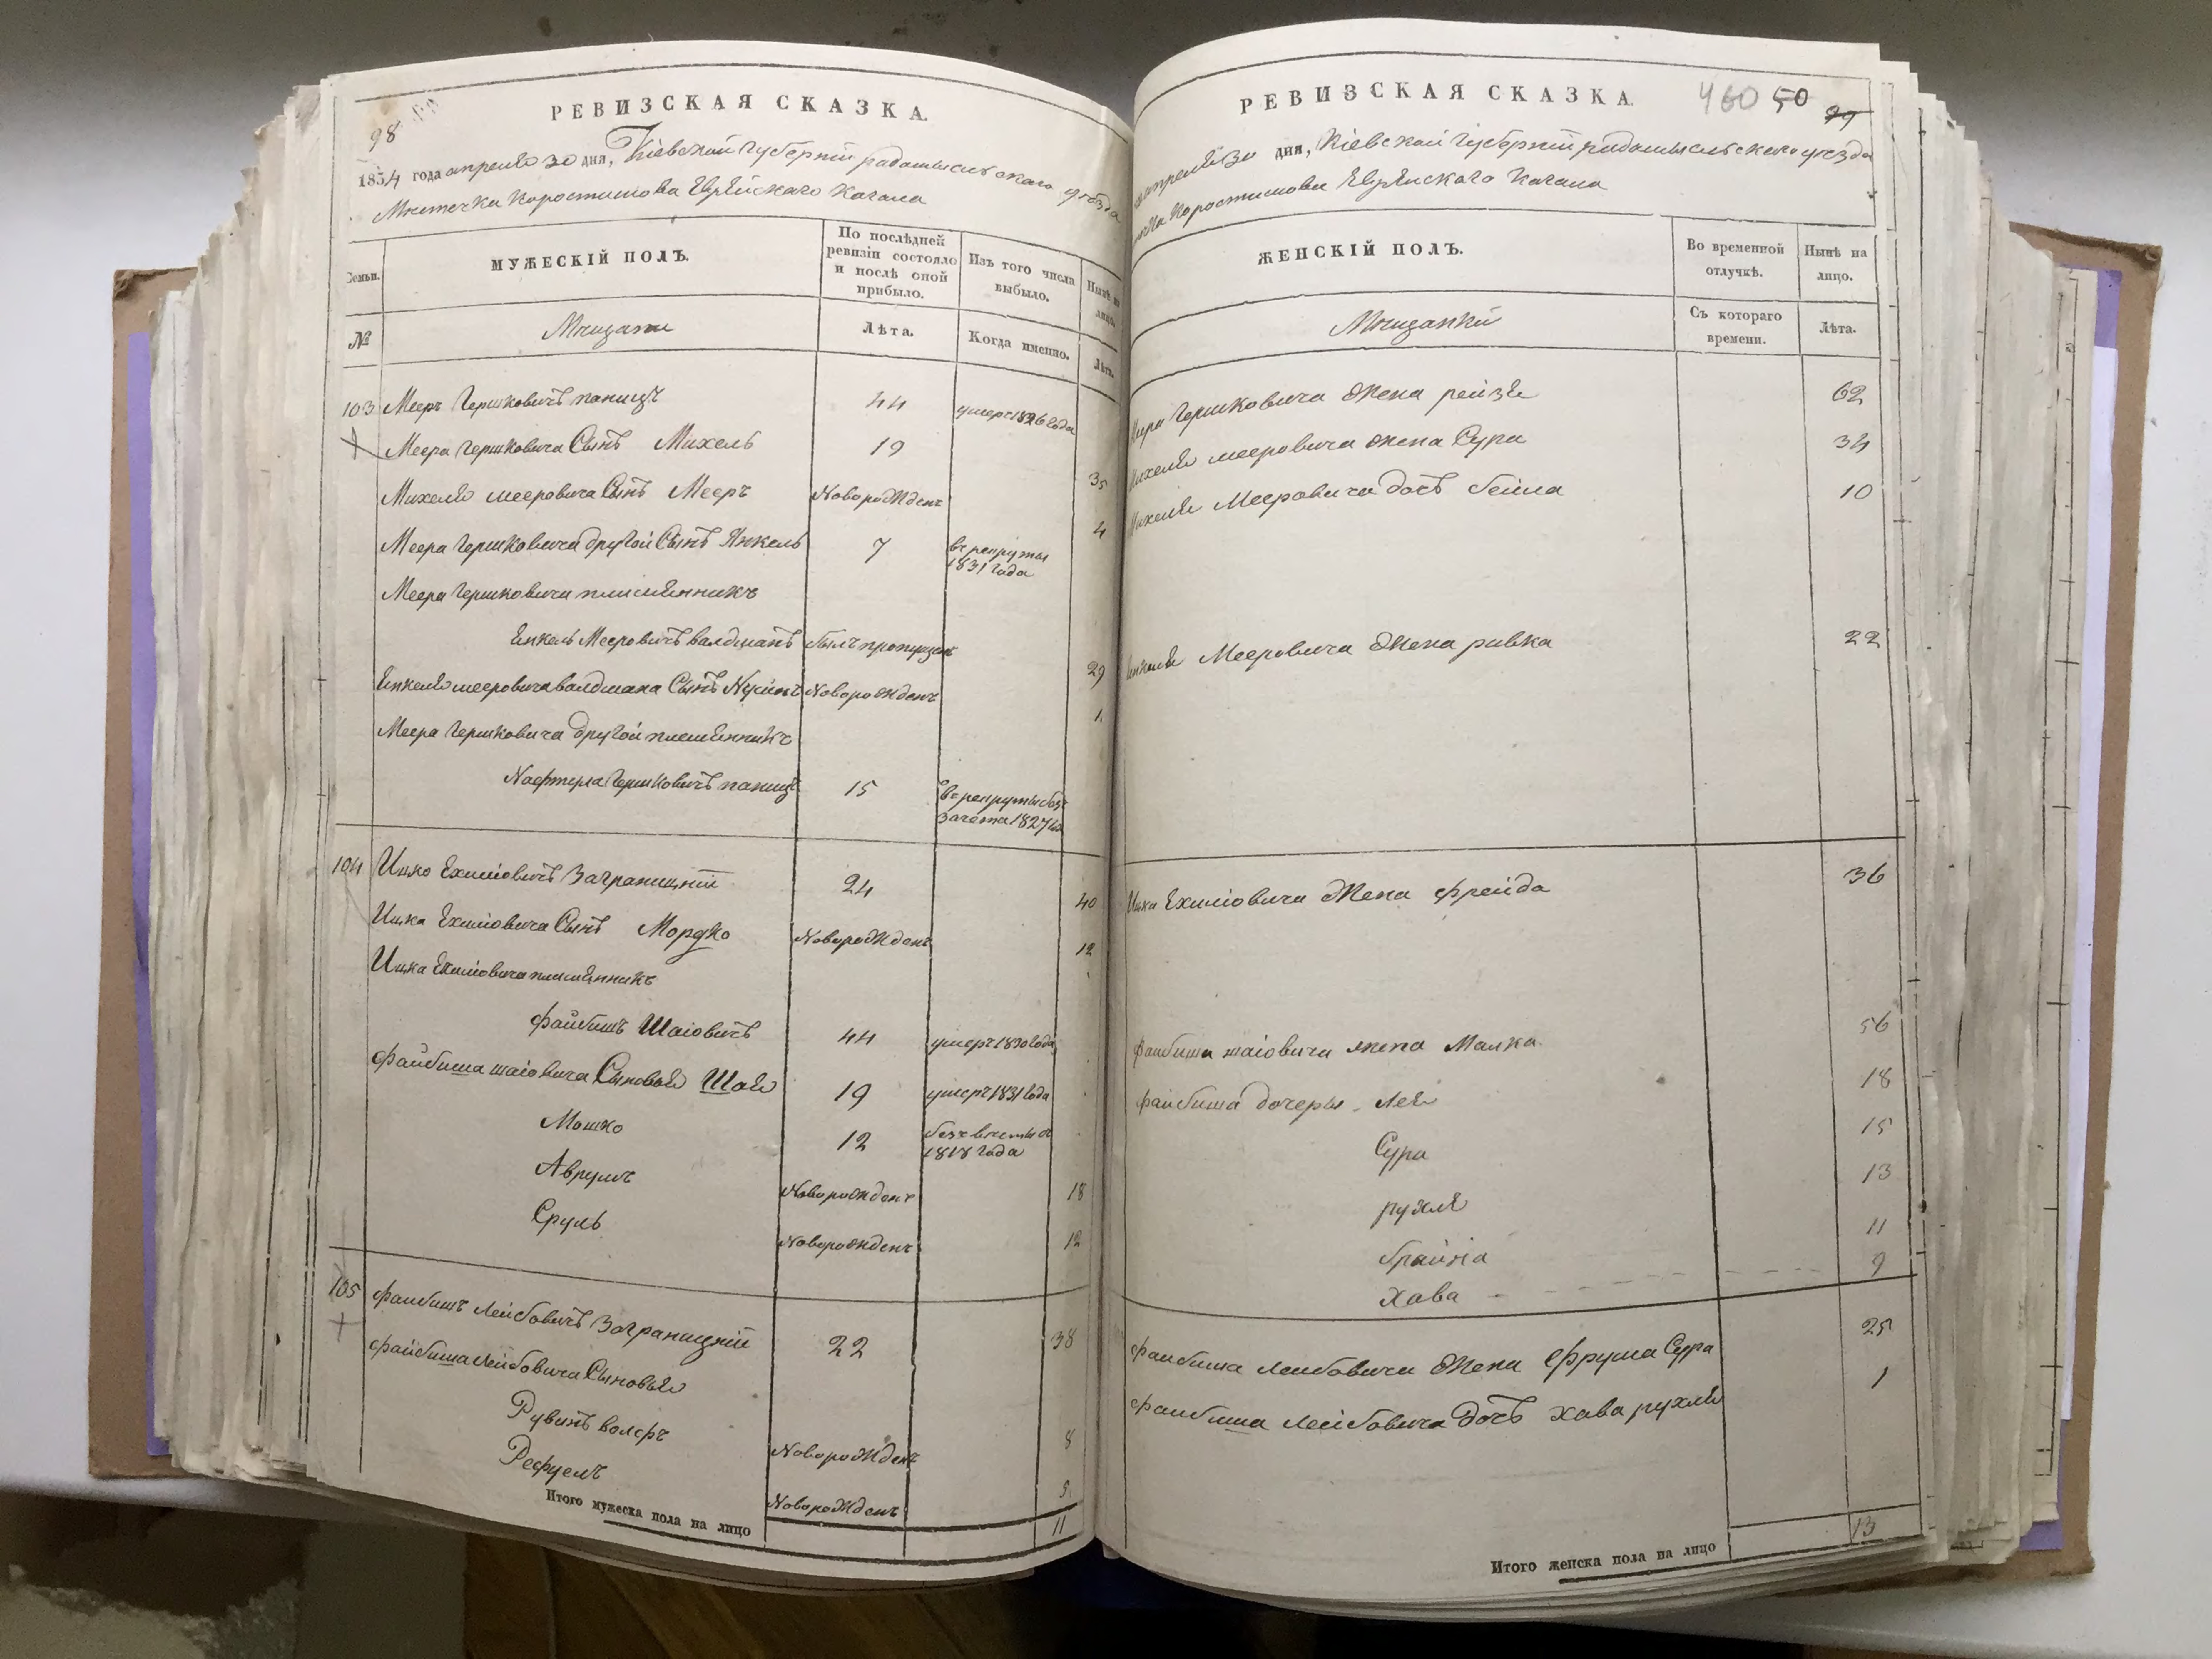 98
РЕВИЗСКАЯ СКАЗКА.
1834 года апреля 30 дня, Кіевской Губерніи радомысльскаго уѣзда
Мѣстечка Коростишова Еврейскаго Кагала
Семьи.
МУЖЕСКІЙ ПОЛЪ.
По послѣдней ревизіи состояло и послѣ оной прибыло.
Изъ того числа выбыло.
Нынѣ на лицо.
№
Мещане
Лѣта.
Когда именно.
Лѣта.
103 Мееръ Гершковичъ паницъ 44 умеръ 1826 года
Меера Гершковича Сынъ Михель 19 35
Михеля мееровича Сынъ Мееръ Новорожденъ 4
Меера Гершковича другой Сынъ Янкель 7 въ рекруты 1831 года
Меера Гершковича племянникъ
Енкель Мееровичъ валдманъ былъ пропущенъ 29
Енкеля мееровича валдмана Сынъ Нусинъ Новорожденъ 1
Меера Гершковича другой племянникъ
Нафтула Гершковичъ паницъ 15 въ рекруты безъ зачета 1827 го
104 Ицко Ехиліовичъ Заграницкій 24 40
Ицка Ехиліовича Сынъ Мордко Новорожденъ 12
Ицка Ехиліовича племянникъ
файбишъ Шаіовичъ 44 умеръ 1830 года
файбиша шаіовича Сыновья Шая 19 умеръ 1831 года
Мошко 12 1818 года
Аврумъ Новорожденъ 18
Сруль Новорожденъ 12
105 файбишъ Лейбовичъ Заграницкій 22 38
файбиша лейбовича Сыновья
Рувинъ волфъ Новорожденъ 8
Рефуелъ Новорожденъ 5
Итого мужеска пола на лицо 11
460 50 99
РЕВИЗСКАЯ СКАЗКА.
апреля 30 дня, Кіевской Губерніи радомысльскаго уѣзда
Коростишова Еврейскаго Кагала
ЖЕНСКІЙ ПОЛЪ.
Во временной отлучкѣ.
Нынѣ на лицо.
Мещанки
Съ котораго времени.
Лѣта.
Меера Гершковича жена рейзя 62
Михеля мееровича жена Сура 34
Михеля Мееровича дочь бейла 10
Енкеля Мееровича жена ривка 22
Ицка Ехиліовича жена фрейда 36
файбиша шаіовича жена Малка 56
файбиша дочеры Лея 18
Сура 15
рухля 13
брайна 11
хава 9
файбиша Лейбовича жена фрума Сура 25
файбиша Лейбовича дочь хава рухля 1
Итого женска пола на лицо 13